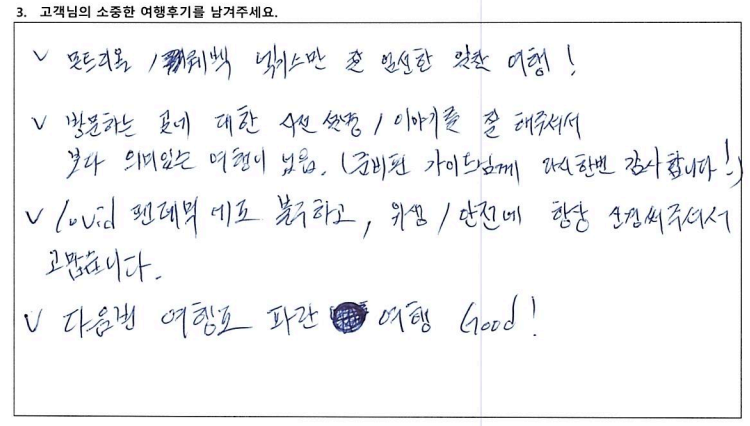 3. 고객님의 소중한 여행후기를 남겨주세요.
v 몬트리올 / 퀘백 엑기스만 잘 엄선한 알찬 여행!
v 방문하는 곳에 대한 사전 설명 / 이야기를 잘 해주셔서
보다 의미있는 여행이 났음. (준비된 가이드님께 다시한번 감사합니다!)
v Covid 펜데믹 에도 불구하고, 위생 / 안전에 항상 신경써주셔서
고맙습니다.
v 다음번 여행도 파란 여행 Good!